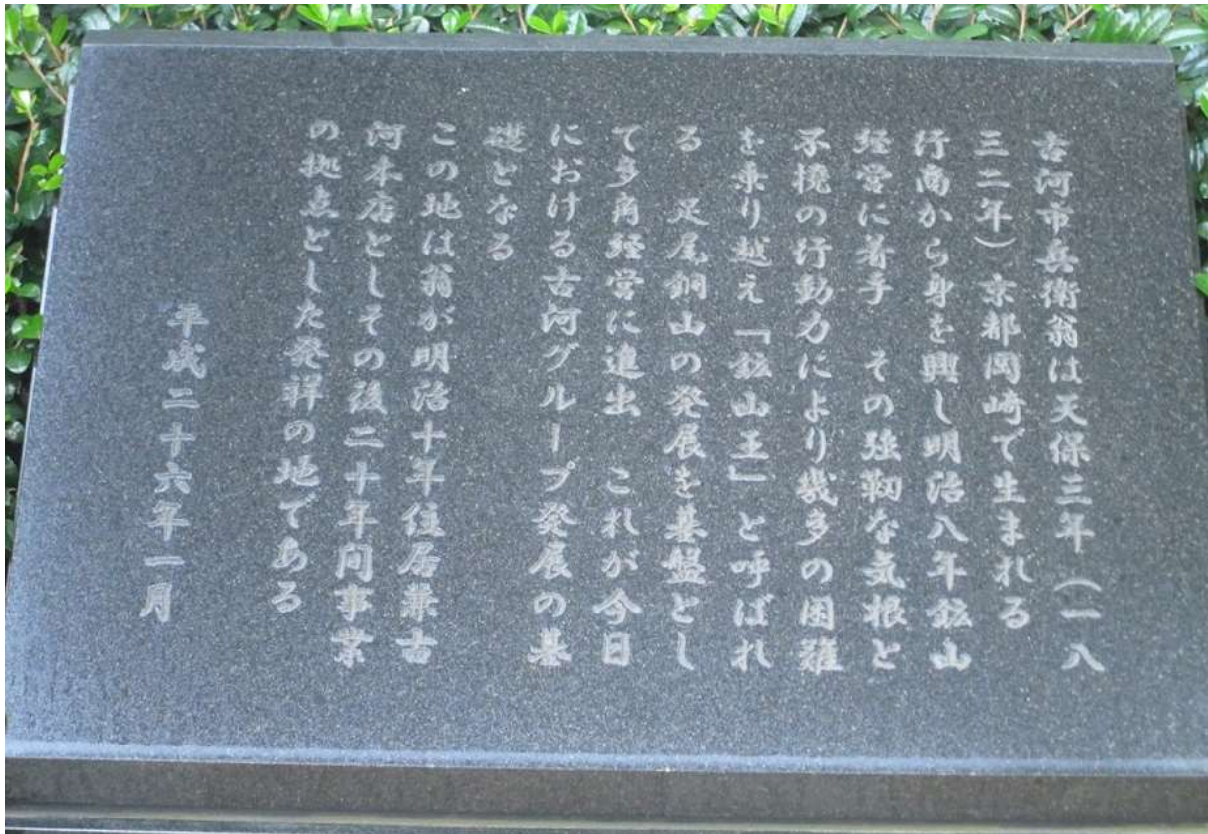 古河市兵衛翁は天保三年（一八
三二年）京都岡崎で生まれる
行商から身を興し明治八年鉱山
経営に着手　その強靭な気根と
不撓の行動力により幾多の困難
を乗り越え「鉱山王」と呼ばれ
る　足尾銅山の発展を基盤とし
て多角経営に進出　これが今日
における古河グループ発展の基
礎となる
この地は翁が明治十年住居兼古
河本店としその後二十年間事業
の拠点とした発祥の地である
平成二十六年一月